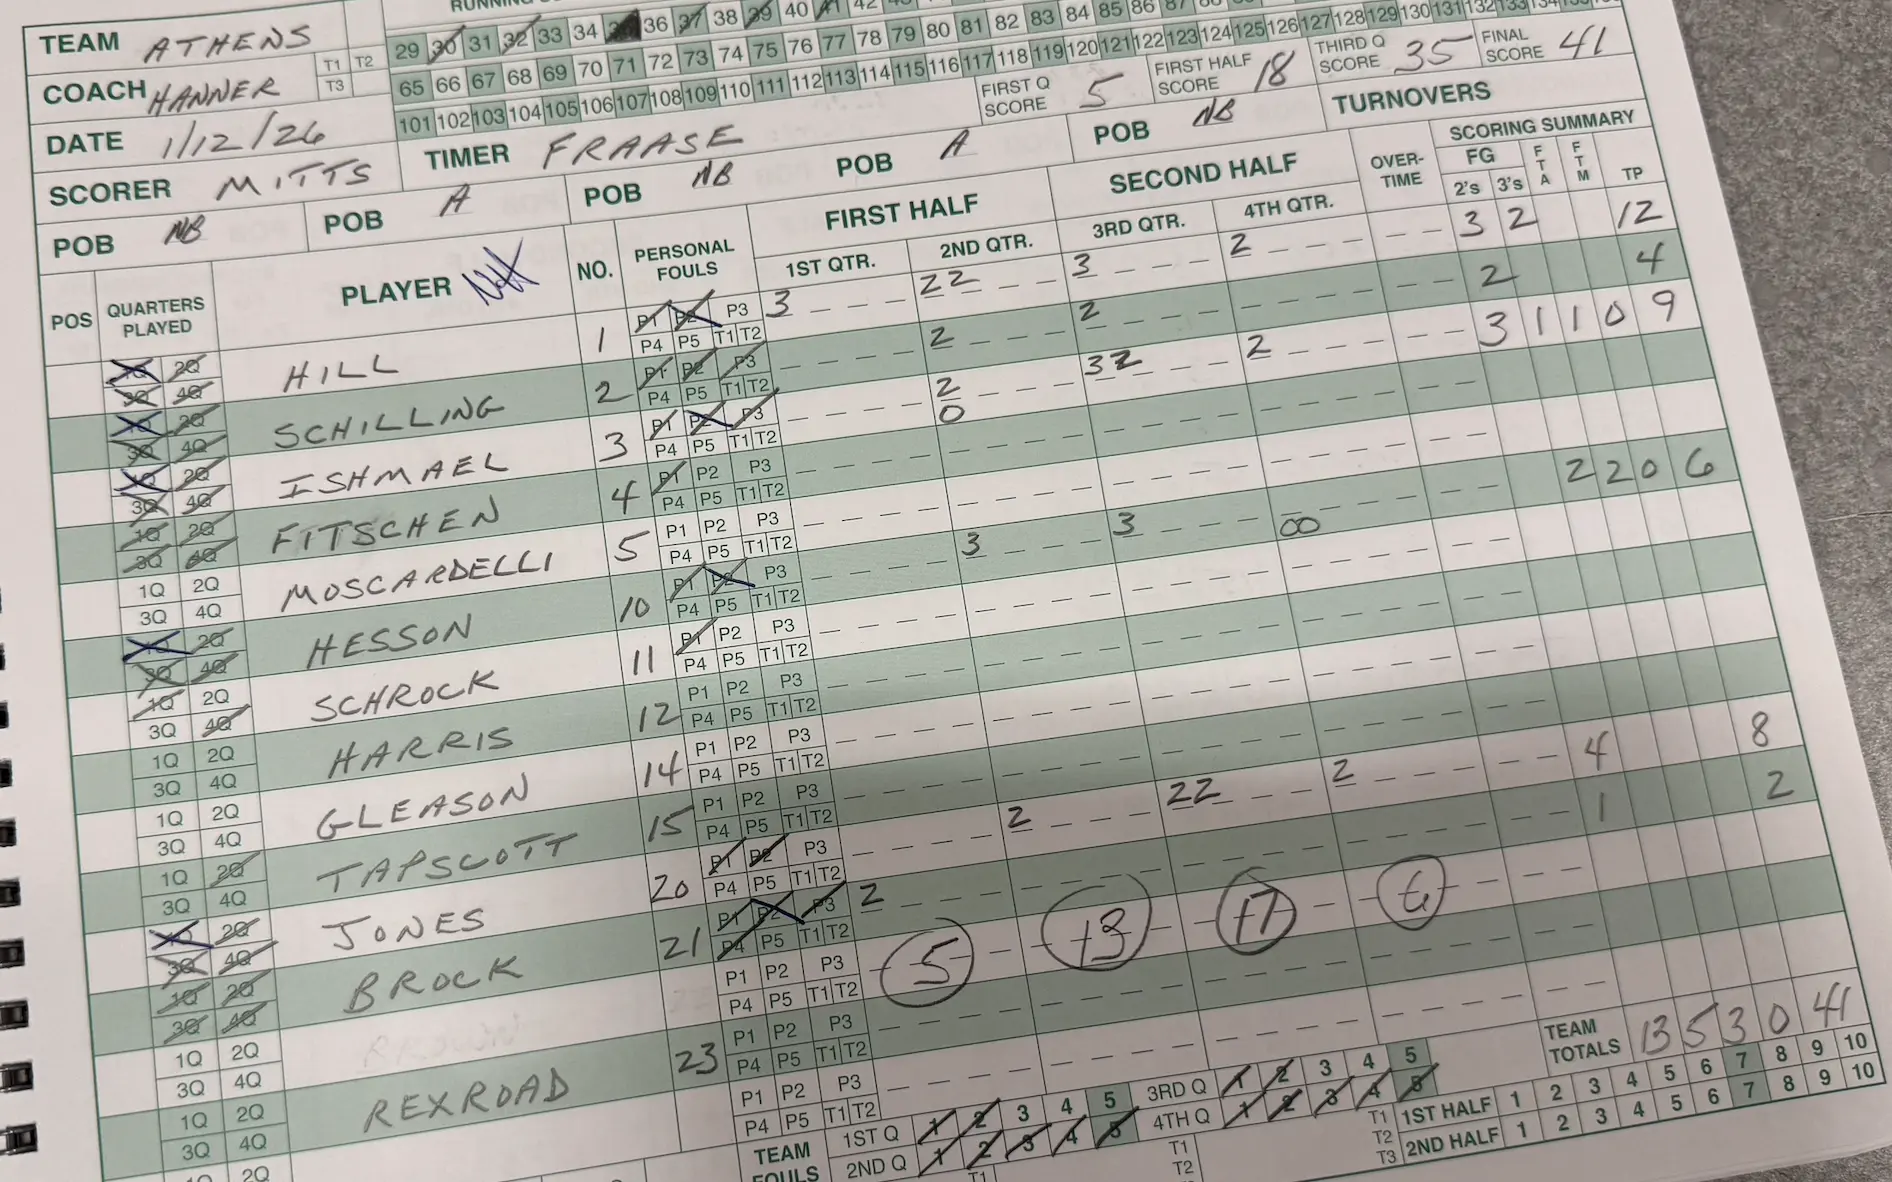 TEAM ATHENS
COACH HANNER T1 T2 T3
DATE 1/12/26
SCORER MITTS
29 30 31 32 33 34 36 37 38 39 40 41 42
65 66 67 68 69 70 71 72 73 74 75 76 77 78 79 80 81 82 83 84 85 86 87
101 102 103 104 105 106 107 108 109 110 111 112 113 114 115 116 117 118 119 120 121 122 123 124 125 126 127 128 129 130 131 132 133 134
FIRST Q SCORE 5 FIRST HALF SCORE 18 THIRD Q SCORE 35 FINAL SCORE 41
TIMER FRAASE
POB NB POB A POB NB POB A POB NB TURNOVERS
POS QUARTERS PLAYED PLAYER NO. PERSONAL FOULS FIRST HALF SECOND HALF OVER-TIME SCORING SUMMARY
1ST QTR. 2ND QTR. 3RD QTR. 4TH QTR. FG 2's 3's FTA FTM TP
1Q 2Q 3Q 4Q HILL 1 P1 P2 P3 P4 P5 T1 T2 3 22 3 2 3 2 12
1Q 2Q 3Q 4Q SCHILLING 2 P1 P2 P3 P4 P5 T1 T2 2 2 2 4
1Q 2Q 3Q 4Q ISHMAEL 3 P1 P2 P3 P4 P5 T1 T2 2 0 32 2 3 1 1 0 9
1Q 2Q 3Q 4Q FITSCHEN 4 P1 P2 P3 P4 P5 T1 T2
1Q 2Q 3Q 4Q MOSCARDELLI 5 P1 P2 P3 P4 P5 T1 T2
1Q 2Q 3Q 4Q HESSON 10 P1 P2 P3 P4 P5 T1 T2 3 3 00 2 2 0 6
1Q 2Q 3Q 4Q SCHROCK 11 P1 P2 P3 P4 P5 T1 T2
1Q 2Q 3Q 4Q HARRIS 12 P1 P2 P3 P4 P5 T1 T2
1Q 2Q 3Q 4Q GLEASON 14 P1 P2 P3 P4 P5 T1 T2
1Q 2Q 3Q 4Q TAPSCOTT 15 P1 P2 P3 P4 P5 T1 T2
1Q 2Q 3Q 4Q JONES 20 P1 P2 P3 P4 P5 T1 T2 2 22 2 4 8
1Q 2Q 3Q 4Q BROCK 21 P1 P2 P3 P4 P5 T1 T2 2 1 2
1Q 2Q 3Q 4Q P1 P2 P3 P4 P5 T1 T2 5 13 17 6
1Q 2Q 3Q 4Q REXROAD 23 P1 P2 P3 P4 P5 T1 T2
1Q 2Q P1 P2 P3 P4 P5 T1 T2
TEAM TOTALS 13 5 3 0 41
TEAM FOULS 1ST Q 1 2 3 4 5 3RD Q 1 2 3 4 5 T1 1ST HALF 1 2 3 4 5 6 7 8 9 10
2ND Q 1 2 3 4 5 4TH Q 1 2 3 4 5 T2 2ND HALF 1 2 3 4 5 6 7 8 9 10
T1 T1 T2 T3